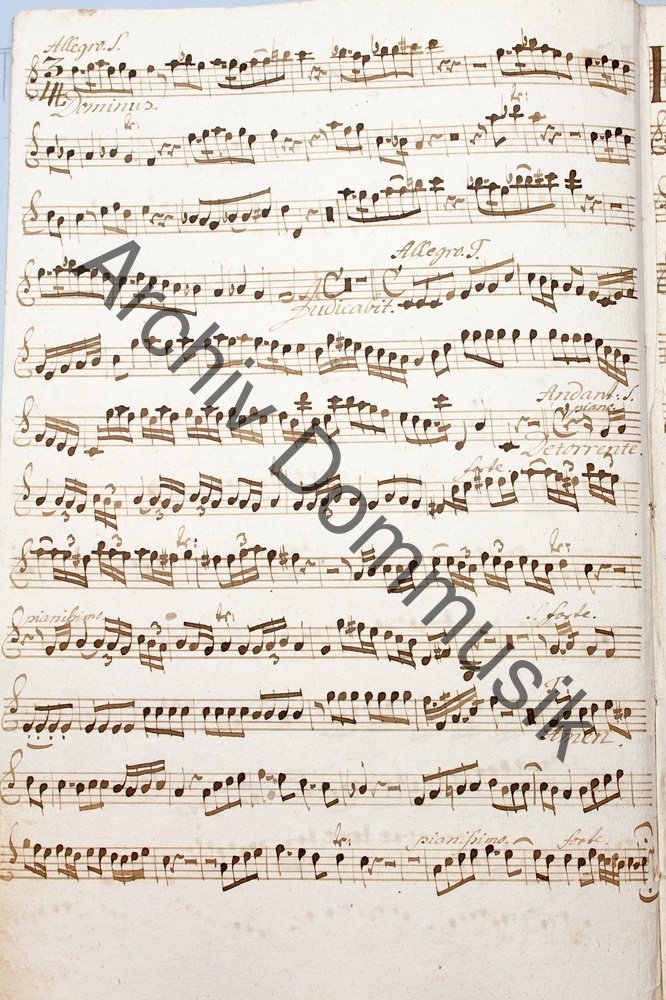 Allegro. S.
3/4
Dominus.
tr:
tr:
Allegro. T.
Judicabit.
Andant: S.
piano
Detorrente.
forte.
3
3
3
3
tr:
3
3
tr:
pianissimo
tr:
3
3
S. forte.
T.
Amen.
tr:
pianissimo.
forte.
Archiv Dommusik